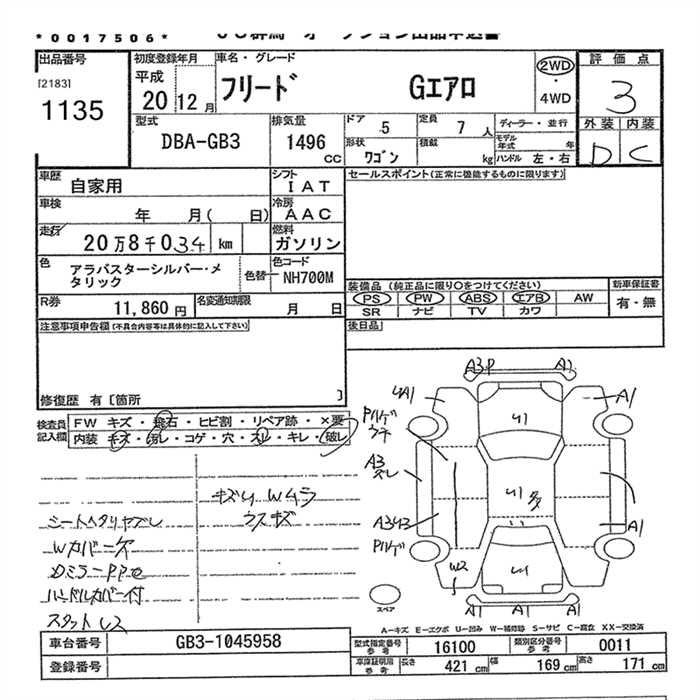 *0017506*
出品番号 初度登録年月 車名・グレード 評価点
[2183] 平成 フリード Gエアロ 2WD 3
1135 20 12月 4WD
型式 排気量 ドア 5 定員 7人 ディーラー・並行 外装 内装
DBA-GB3 1496 cc 形状 ワゴン 積載 kg モデル年式 年 D C
ハンドル 左・右
車歴 自家用 シフト IAT セールスポイント(正常に機能するものに限ります)
車検 年 月( 日) 冷房 AAC
走行 20万8千034 km 燃料 ガソリン
色 アラバスターシルバー・メタリック 色替 色コード NH700M
装備品 (純正品に限り○をつけてください) 新車保証書
PS PW ABS エアB AW 有・無
SR ナビ TV カワ
R券 11,860円 名変通知期限 月 日 後日品
注意事項申告欄(不具合内容等は具体的に記入して下さい)
修復歴 有[箇所 ]
検査員記入欄 FW キズ・飛石・ヒビ割・リペア跡・×要
内装 キズ・汚レ・コゲ・穴・スレ・キレ・破レ
シートヘタリヤブレ
Wカバー欠
ハンドルカバー付
スタットレス
キズU Wムラ
ウスキズ
A3P A1
4A1 A1
Pハゲ
U1
A3
スレ
U1 多
A3U3 A1
Pハゲ
W2
S U1
A1 A1 A1
スペア
A-キズ E-エクボ U-凹み W-補修跡 S-サビ C-腐食 XX-交換済
車台番号 GB3-1045958 型式指定番号 参考 16100 類別区分番号 参考 0011
登録番号 車庫証明用 参考 長さ 421cm 幅 169cm 高さ 171cm